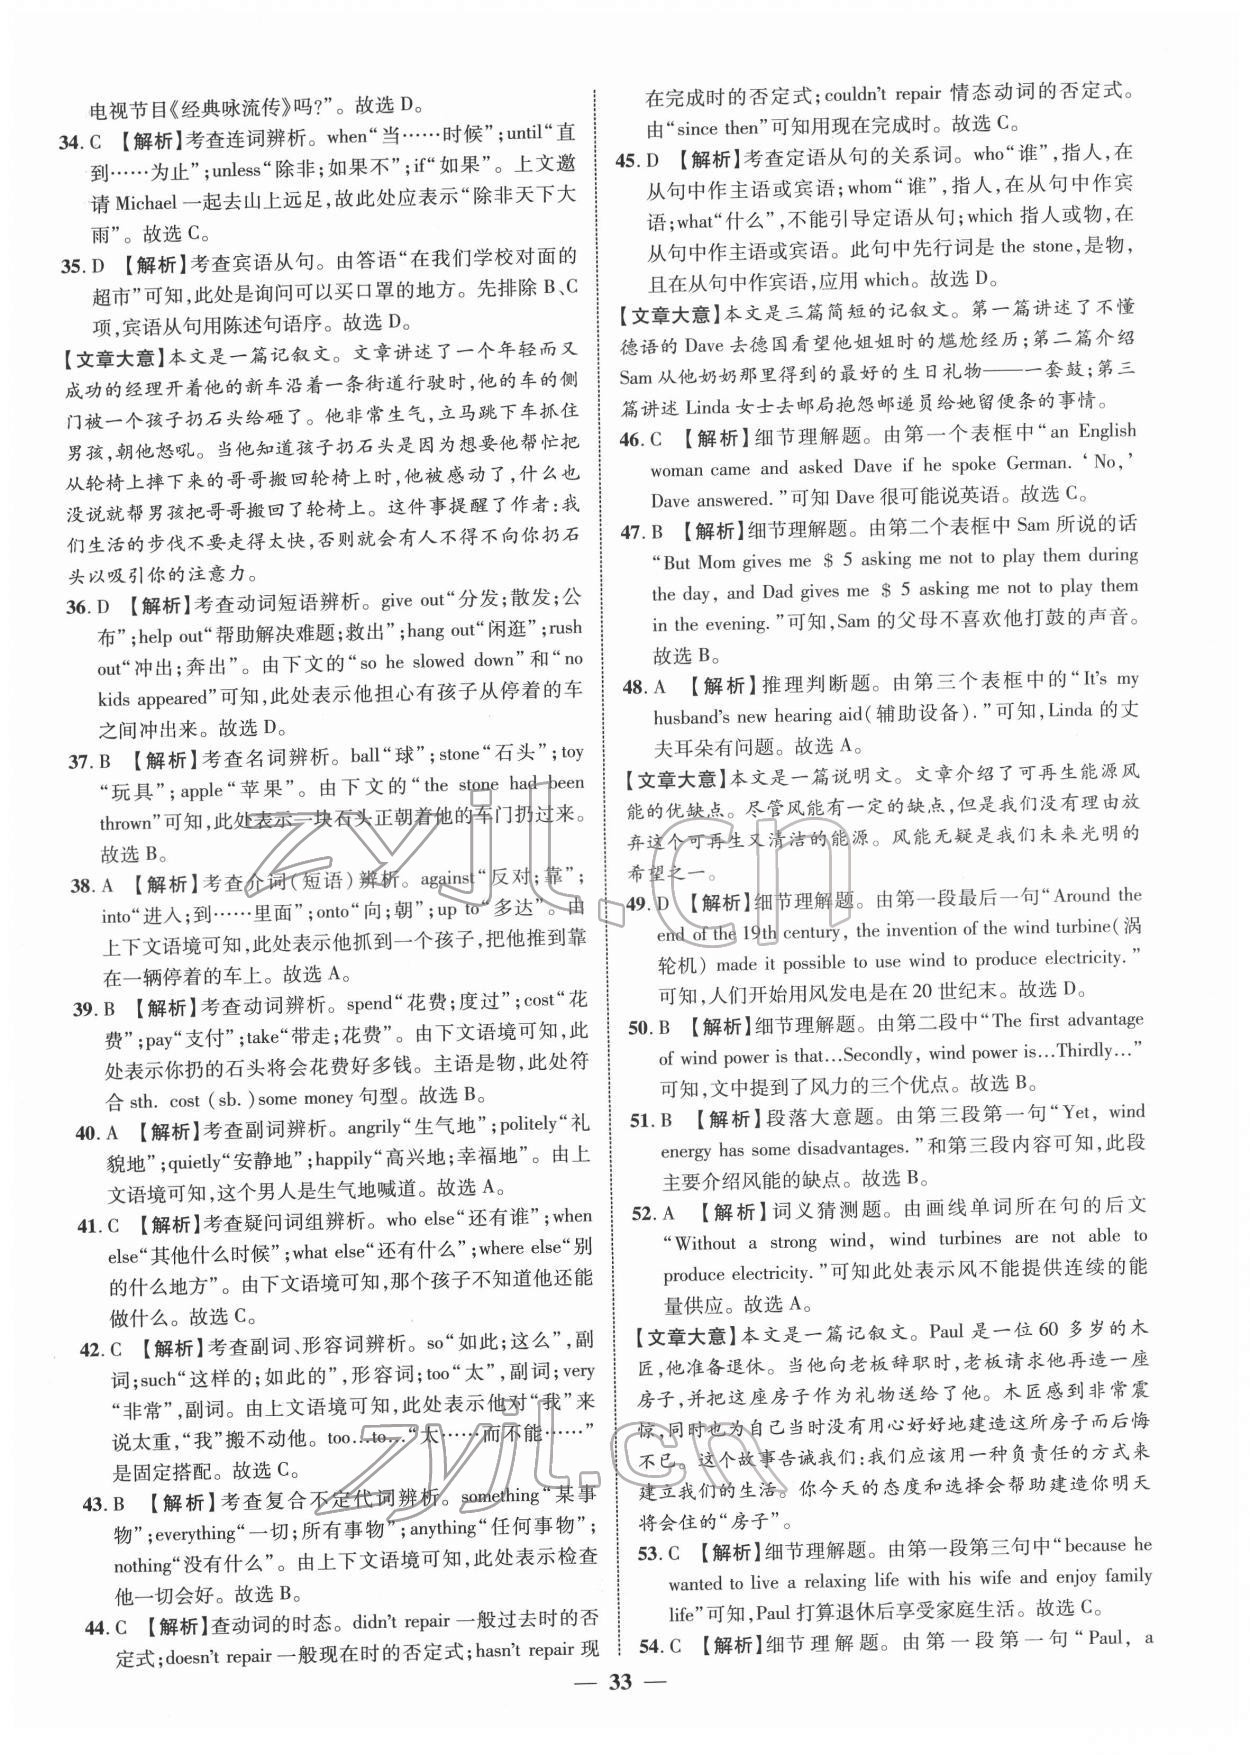 电视节目《经典咏流传》吗?”。故选 D。
34. C 【解析】考查连词辨析。when“当……时候”;until“直
到……为止”;unless“除非;如果不”;if“如果”。上文邀
请 Michael 一起去山上远足,故此处应表示“除非天下大
雨”。故选 C。
35. D 【解析】考查宾语从句。由答语“在我们学校对面的
超市”可知,此处是询问可以买口罩的地方。先排除 B、C
项,宾语从句用陈述句语序。故选 D。
【文章大意】本文是一篇记叙文。文章讲述了一个年轻而又
成功的经理开着他的新车沿着一条街道行驶时,他的车的侧
门被一个孩子扔石头给砸了。他非常生气,立马跳下车抓住
男孩,朝他怒吼。当他知道孩子扔石头是因为想要他帮忙把
从轮椅上摔下来的哥哥搬回轮椅上时,他被感动了,什么也
没说就帮男孩把哥哥搬回了轮椅上。这件事提醒了作者:我
们生活的步伐不要走得太快,否则就会有人不得不向你扔石
头以吸引你的注意力。
36. D 【解析】考查动词短语辨析。give out“分发;散发;公
布”;help out“帮助解决难题;救出”;hang out“闲逛”;rush
out“冲出;奔出”。由下文的“so he slowed down”和“no
kids appeared”可知,此处表示他担心有孩子从停着的车
之间冲出来。故选 D。
37. B 【解析】考查名词辨析。ball“球”;stone“石头”;toy
“玩具”;apple“苹果”。由下文的“the stone had been
thrown”可知,此处表示一块石头正朝着他的车门扔过来。
故选 B。
38. A 【解析】考查介词(短语)辨析。against“反对;靠”;
into“进入;到……里面”;onto“向;朝”;up to“多达”。由
上下文语境可知,此处表示他抓到一个孩子,把他推到靠
在一辆停着的车上。故选 A。
39. B 【解析】考查动词辨析。spend“花费;度过”;cost“花
费”;pay“支付”;take“带走;花费”。由下文语境可知,此
处表示你扔的石头将会花费好多钱。主语是物,此处符
合 sth. cost (sb.) some money 句型。故选 B。
40. A 【解析】考查副词辨析。angrily“生气地”;politely“礼
貌地”;quietly“安静地”;happily“高兴地;幸福地”。由上
文语境可知,这个男人是生气地喊道。故选 A。
41. C 【解析】考查疑问词组辨析。who else“还有谁”;when
else“其他什么时候”;what else“还有什么”;where else“别
的什么地方”。由下文语境可知,那个孩子不知道他还能
做什么。故选 C。
42. C 【解析】考查副词、形容词辨析。so“如此;这么”,副
词;such“这样的;如此的”,形容词;too“太”,副词;very
“非常”,副词。由上文语境可知,此处表示他对“我”来
说太重,“我”搬不动他。too…to…“太……而不能……”
是固定搭配。故选 C。
43. B 【解析】考查复合不定代词辨析。something“某事
物”;everything“一切;所有事物”;anything“任何事物”;
nothing“没有什么”。由上下文语境可知,此处表示检查
他一切会好。故选 B。
44. C 【解析】查动词的时态。didn't repair 一般过去时的否
定式;doesn't repair 一般现在时的否定式;hasn't repair 现
在完成时的否定式;couldn't repair 情态动词的否定式。
由“since then”可知用现在完成时。故选 C。
45. D 【解析】考查定语从句的关系词。who“谁”,指人,在
从句中作主语或宾语;whom“谁”,指人,在从句中作宾
语;what“什么”,不能引导定语从句;which 指人或物,在
从句中作主语或宾语。此句中先行词是 the stone,是物,
且在从句中作宾语,应用 which。故选 D。
【文章大意】本文是三篇简短的记叙文。第一篇讲述了不懂
德语的 Dave 去德国看望他姐姐时的尴尬经历;第二篇介绍
Sam 从他奶奶那里得到的最好的生日礼物——一套鼓;第三
篇讲述 Linda 女士去邮局抱怨邮递员给她留便条的事情。
46. C 【解析】细节理解题。由第一个表框中“an English
woman came and asked Dave if he spoke German. ‘No,’
Dave answered.”可知 Dave 很可能说英语。故选 C。
47. B 【解析】细节理解题。由第二个表框中 Sam 所说的话
“But Mom gives me $ 5 asking me not to play them during
the day, and Dad gives me $ 5 asking me not to play them
in the evening.”可知,Sam 的父母不喜欢他打鼓的声音。
故选 B。
48. A 【解析】推理判断题。由第三个表框中的“It's my
husband's new hearing aid(辅助设备).”可知,Linda 的丈
夫耳朵有问题。故选 A。
【文章大意】本文是一篇说明文。文章介绍了可再生能源风
能的优缺点。尽管风能有一定的缺点,但是我们没有理由放
弃这个可再生又清洁的能源。风能无疑是我们未来光明的
希望之一。
49. D 【解析】细节理解题。由第一段最后一句“Around the
end of the 19th century, the invention of the wind turbine(涡
轮机) made it possible to use wind to produce electricity.”
可知,人们开始用风发电是在 20 世纪末。故选 D。
50. B 【解析】细节理解题。由第二段中“The first advantage
of wind power is that…Secondly, wind power is…Thirdly…”
可知,文中提到了风力的三个优点。故选 B。
51. B 【解析】段落大意题。由第三段第一句“Yet, wind
energy has some disadvantages.”和第三段内容可知,此段
主要介绍风能的缺点。故选 B。
52. A 【解析】词义猜测题。由画线单词所在句的后文
“Without a strong wind, wind turbines are not able to
produce electricity.”可知此处表示风不能提供连续的能
量供应。故选 A。
【文章大意】本文是一篇记叙文。Paul 是一位 60 多岁的木
匠,他准备退休。当他向老板辞职时,老板请求他再造一座
房子,并把这座房子作为礼物送给了他。木匠感到非常震
惊,同时也为自己当时没有用心好好地建造这所房子而后悔
不已。这个故事告诫我们:我们应该用一种负责任的方式来
建立我们的生活。你今天的态度和选择会帮助建造你明天
将会住的“房子”。
53. C 【解析】细节理解题。由第一段第三句中“because he
wanted to live a relaxing life with his wife and enjoy family
life”可知,Paul 打算退休后享受家庭生活。故选 C。
54. C 【解析】细节理解题。由第一段第一句“Paul, a
— 33 —
zyjl.cn
zyjl.cn